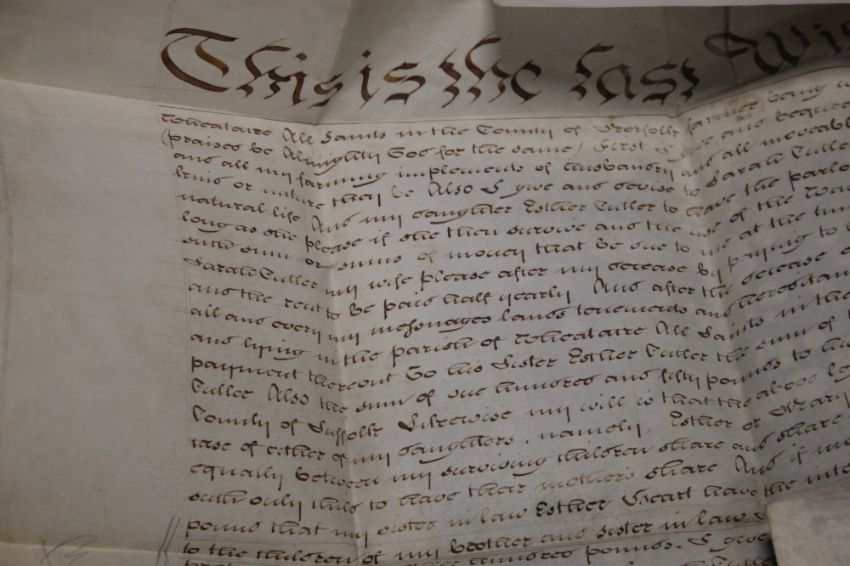 This is the last Wi
Wheatacre All Saints in the County of Norfolk farmer being
(praised be Almighty God for the same) First I give and beque
and all my farming implements of husbandry and all moveabl
kind or nature they be Also I give and devise to Sarah Tuller
natural life And my daughter Esther Tuller to have the parlo
long as she please if she then survive and the use of the
such sum or sums of money that be due to me at the tim
Sarah Tuller my wife please after my decease by paying to
and the rent to be paid half yearly And after the decease
all and every my messuages lands tenements and hereditam
and lying in the parish of Wheatacre All Saints in the
payment thereout To his Sister Esther Tuller the sum of
Tuller Also the sum of one hundred and fifty pounds to
County of Suffolk Likewise my will is that the above
case of either of my daughters, namely, Esther or Mary
equally between my surviving children share and share
such only child to have their mothers share And if
pound that my sister in law Esther have the inte
to the children of my brother and sister in law
hundred pounds. I give